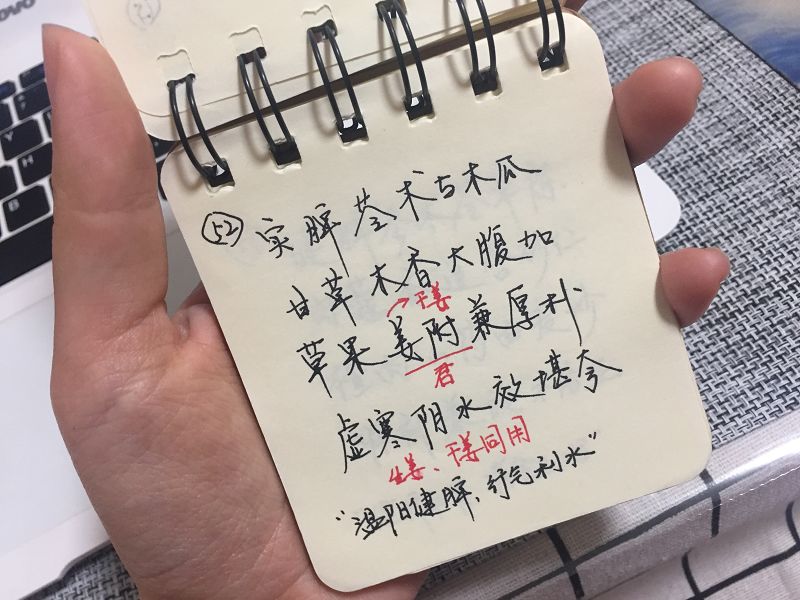 novo
52 实脾苓术与木瓜
甘草木香大腹加
干姜
草果姜附兼厚朴
君
虚寒阴水效堪夸
生姜、干姜同用
“温阳健脾，行气利水”